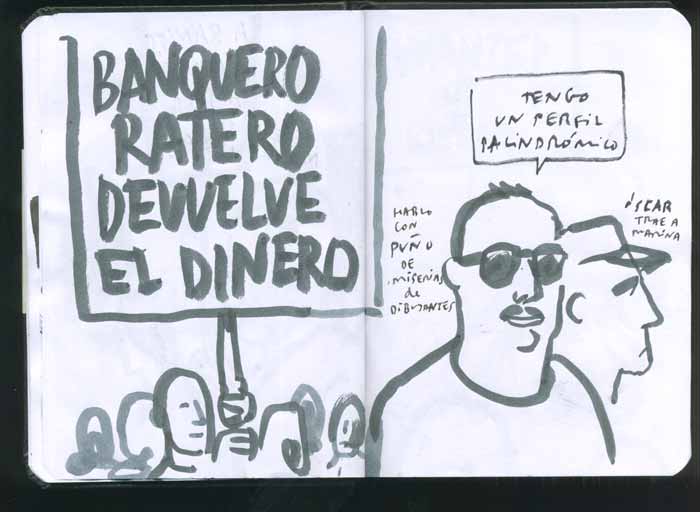 BANQUERO
RATERO
DEVUELVE
EL DINERO
TENGO
UN PERFIL
PALINDRÓMICO
HABLO
CON
PUÑO
DE
MISERIAS
de
DIBUJANTES
ÓSCAR
TRAE A
MARINA